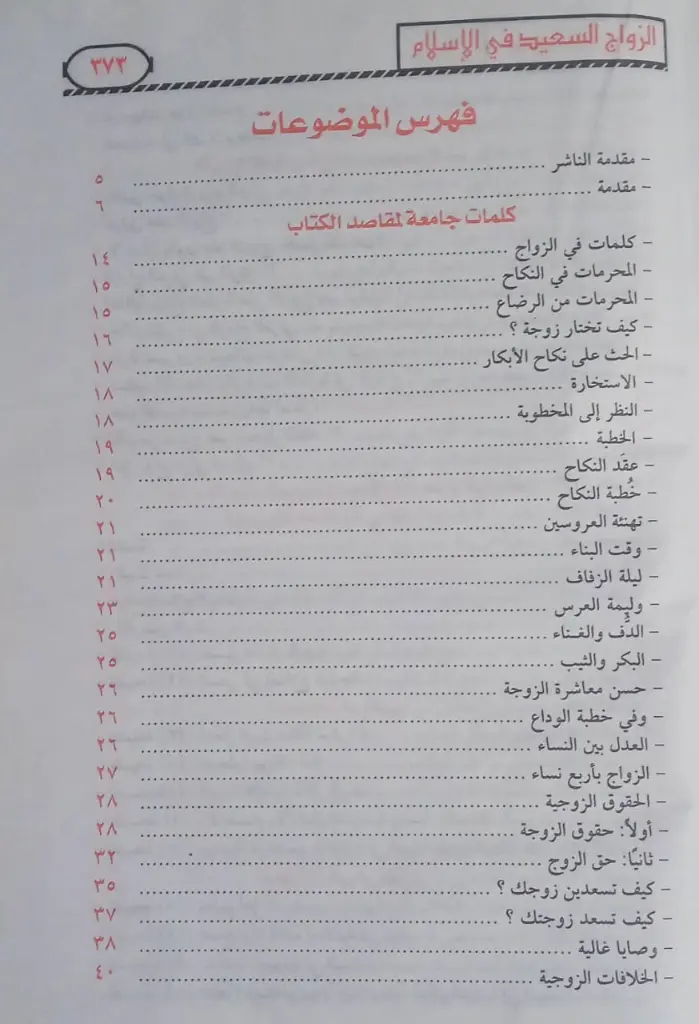 الزواج السعيد في الإسلام
٣٧٣
فهرس الموضوعات
- مقدمة الناشر ........ ٥
- مقدمة ........ ٦
كلمات جامعة لمقاصد الكتاب
- كلمات في الزواج ........ ١٤
- المحرمات في النكاح ........ ١٥
- المحرمات من الرضاع ........ ١٥
- كيف تختار زوجة ؟ ........ ١٦
- الحث على نكاح الأبكار ........ ١٧
- الاستخارة ........ ١٨
- النظر إلى المخطوبة ........ ١٨
- الخطبة ........ ١٩
- عقَد النكاح ........ ١٩
- خُطبة النكاح ........ ٢٠
- تهنئة العروسين ........ ٢١
- وقت البناء ........ ٢١
- ليلة الزفاف ........ ٢١
- وليمة العرس ........ ٢٣
- الدُّف والغناء ........ ٢٥
- البكر والثيب ........ ٢٥
- حسن معاشرة الزوجة ........ ٢٦
- وفي خطبة الوداع ........ ٢٦
- العدل بين النساء ........ ٢٦
- الزواج بأربع نساء ........ ٢٧
- الحقوق الزوجية ........ ٢٨
- أولاً: حقوق الزوجة ........ ٢٨
- ثانيًا: حق الزوج ........ ٣٢
- كيف تسعدين زوجك ؟ ........ ٣٥
- كيف تسعد زوجتك ؟ ........ ٣٧
- وصايا غالية ........ ٣٨
- الخلافات الزوجية ........ ٤٠